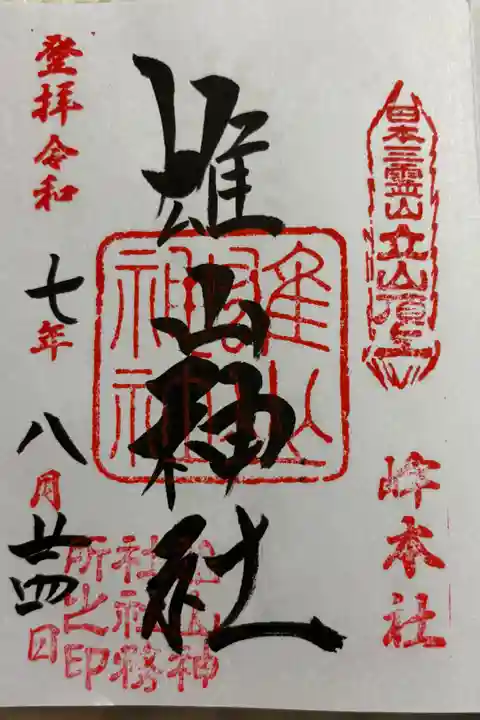 日本三霊山立山頂上
峰本社
雄山神社
雄山神社
登拝令和七年八月廿四日
雄山神
社社務
所之印